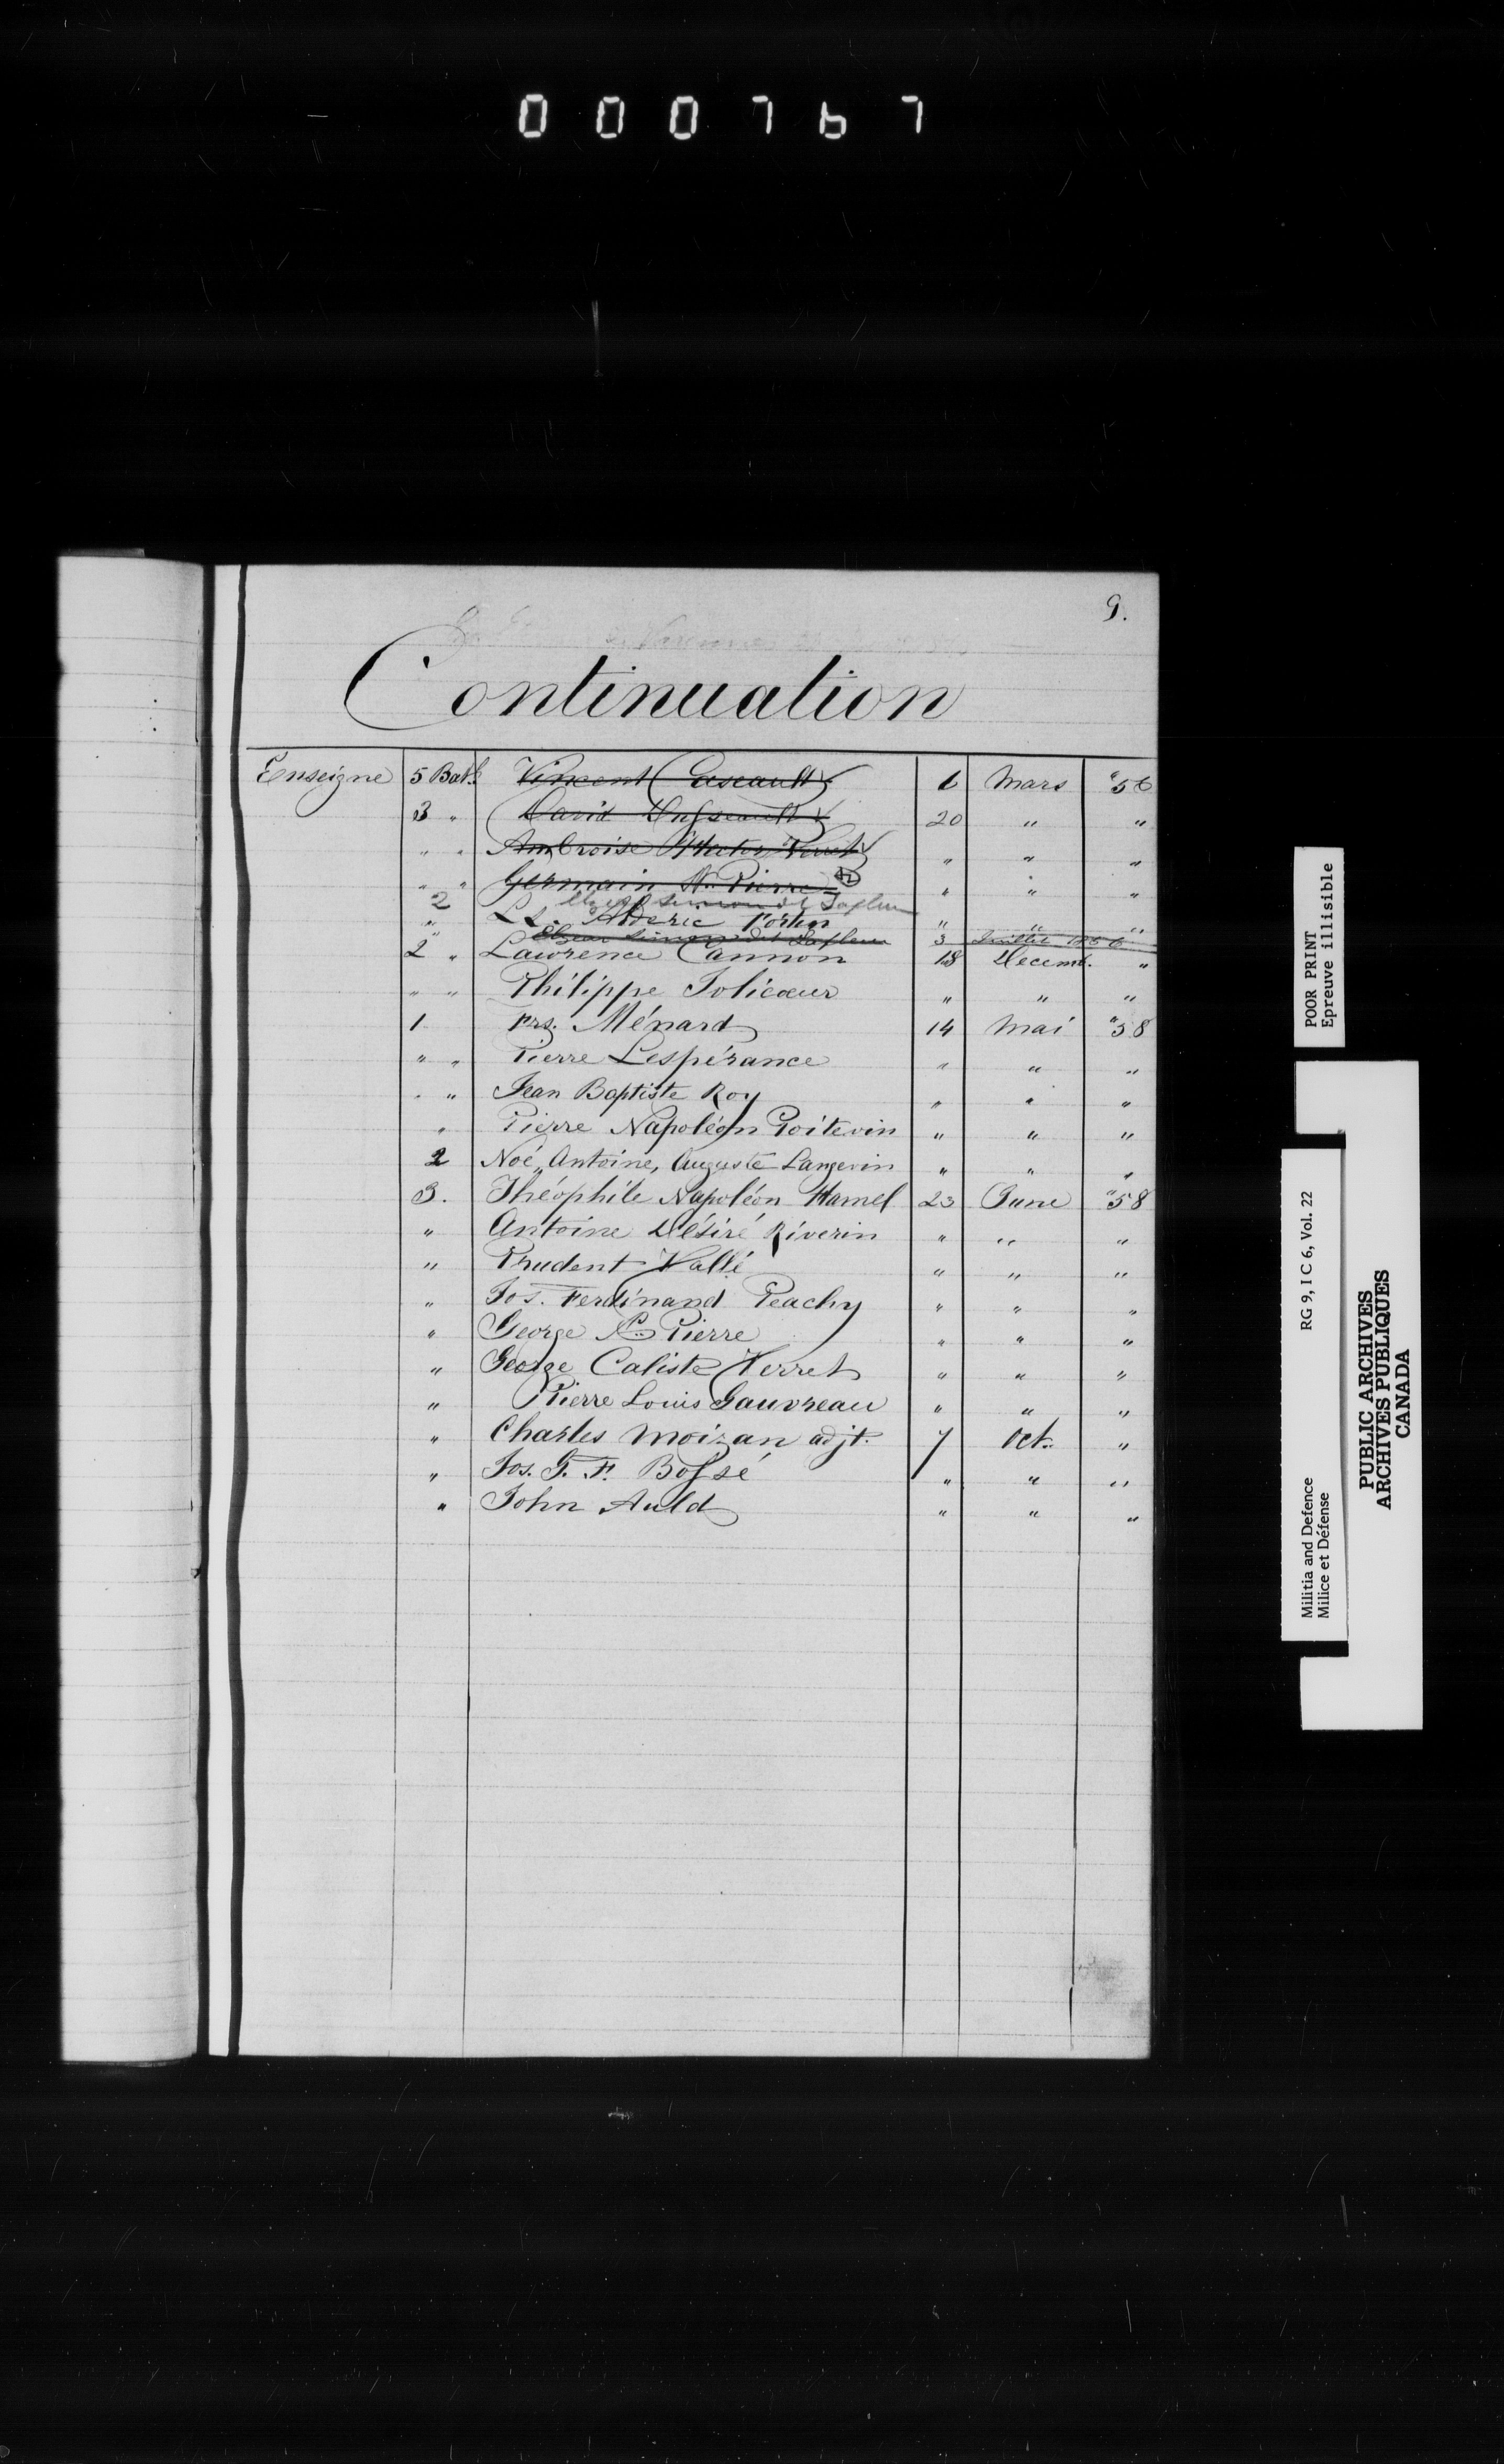 000767
9.
Continuation
Enseigne 5 Batl. Vincent Caseault 6 Mars "56
3 " David 20 " "
" " Ambroise Hector Verret " " "
" " Germain St. Pierre " " "
2 Simon dt Lafleur
" Ls. Alderic Fortin " " "
" Elzear Simon dit Lafleur 3 Juillet 1856
2 " Lawrence Cannon 18 Decemb. "
" " Philippe Jolicœur " " "
1 Frs. Ménard 14 Mai "58
" " Pierre Lespérance " " "
" " Jean Baptiste Roy " " "
" Pierre Napoléon Poitevin " " "
2 Noé, Antoine, Auguste Langevin " " "
3. Théophile Napoléon Hamel 23 June "58
" Antoine Désiré Riverin " " "
" Prudent Vallé " " "
" Jos. Ferdinand Peachy " " "
" George St. Pierre " " "
" George Caliste Verret " " "
" Pierre Louis Gauvreau " " "
" Charles Moizan adjt. 7 Oct. "
" Jos. G. F. Bossé " " "
" John Auld " " "
POOR PRINT
Epreuve illisible
RG 9, I C 6, Vol. 22
Militia and Defence
Milice et Défense
PUBLIC ARCHIVES
ARCHIVES PUBLIQUES
CANADA